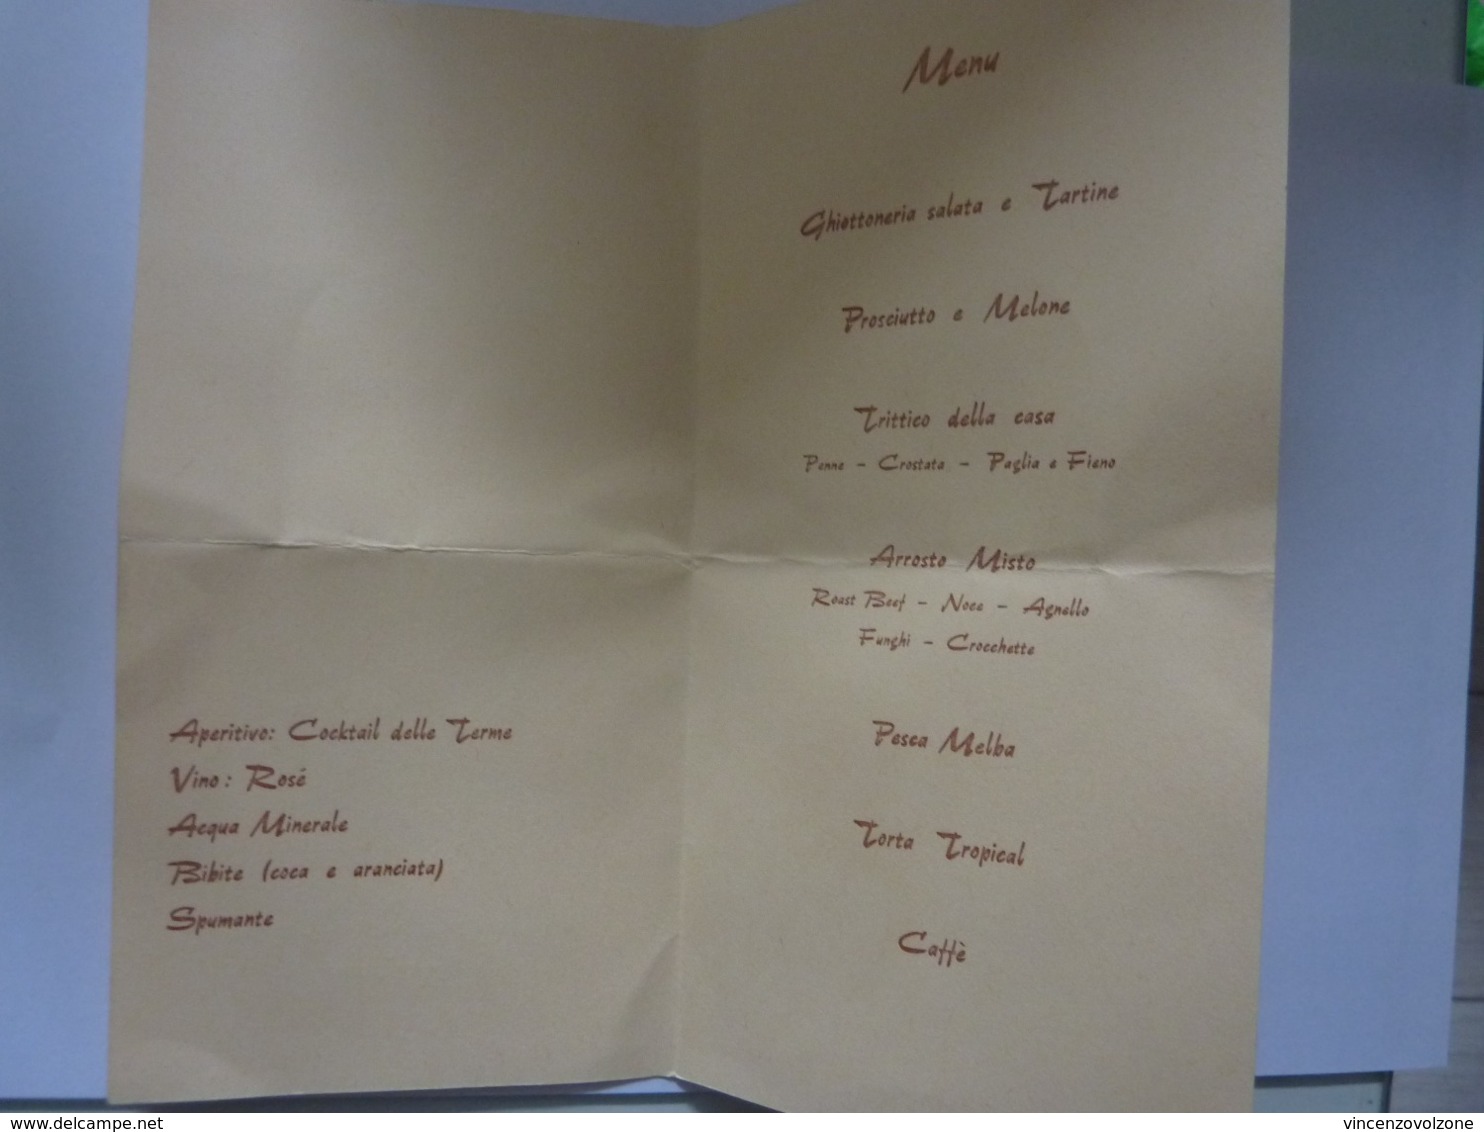 Menu
Ghiottoneria salata e Tartine
Prosciutto e Melone
Trittico della casa
Penne - Crostata - Paglia e Fieno
Arrosto Misto
Roast Beef - Noce - Agnello
Funghi - Crocchette
Pesca Melba
Torta Tropical
Caffè
Aperitivo: Cocktail delle Terme
Vino: Rosé
Acqua Minerale
Bibite (coca e aranciata)
Spumante
www.delcampe.net
vincenzovolzone